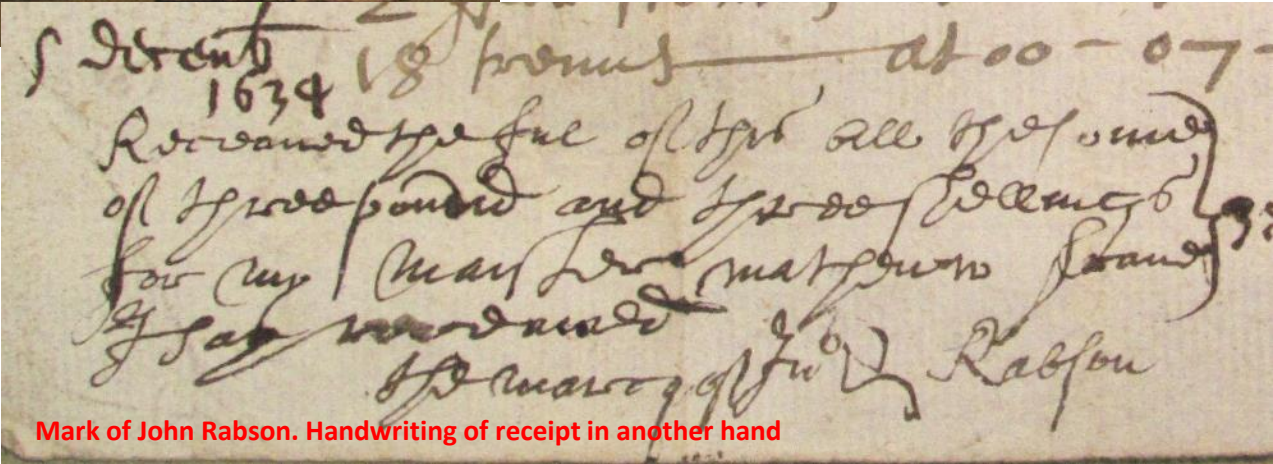 5 decemb 18 at 00 - 07 -
1634
Receaued the ful of this bill the some
of three pound and three shellings
for my maister mathew
I hav receaued
the marcq of Jno Rabson
Mark of John Rabson. Handwriting of receipt in another hand